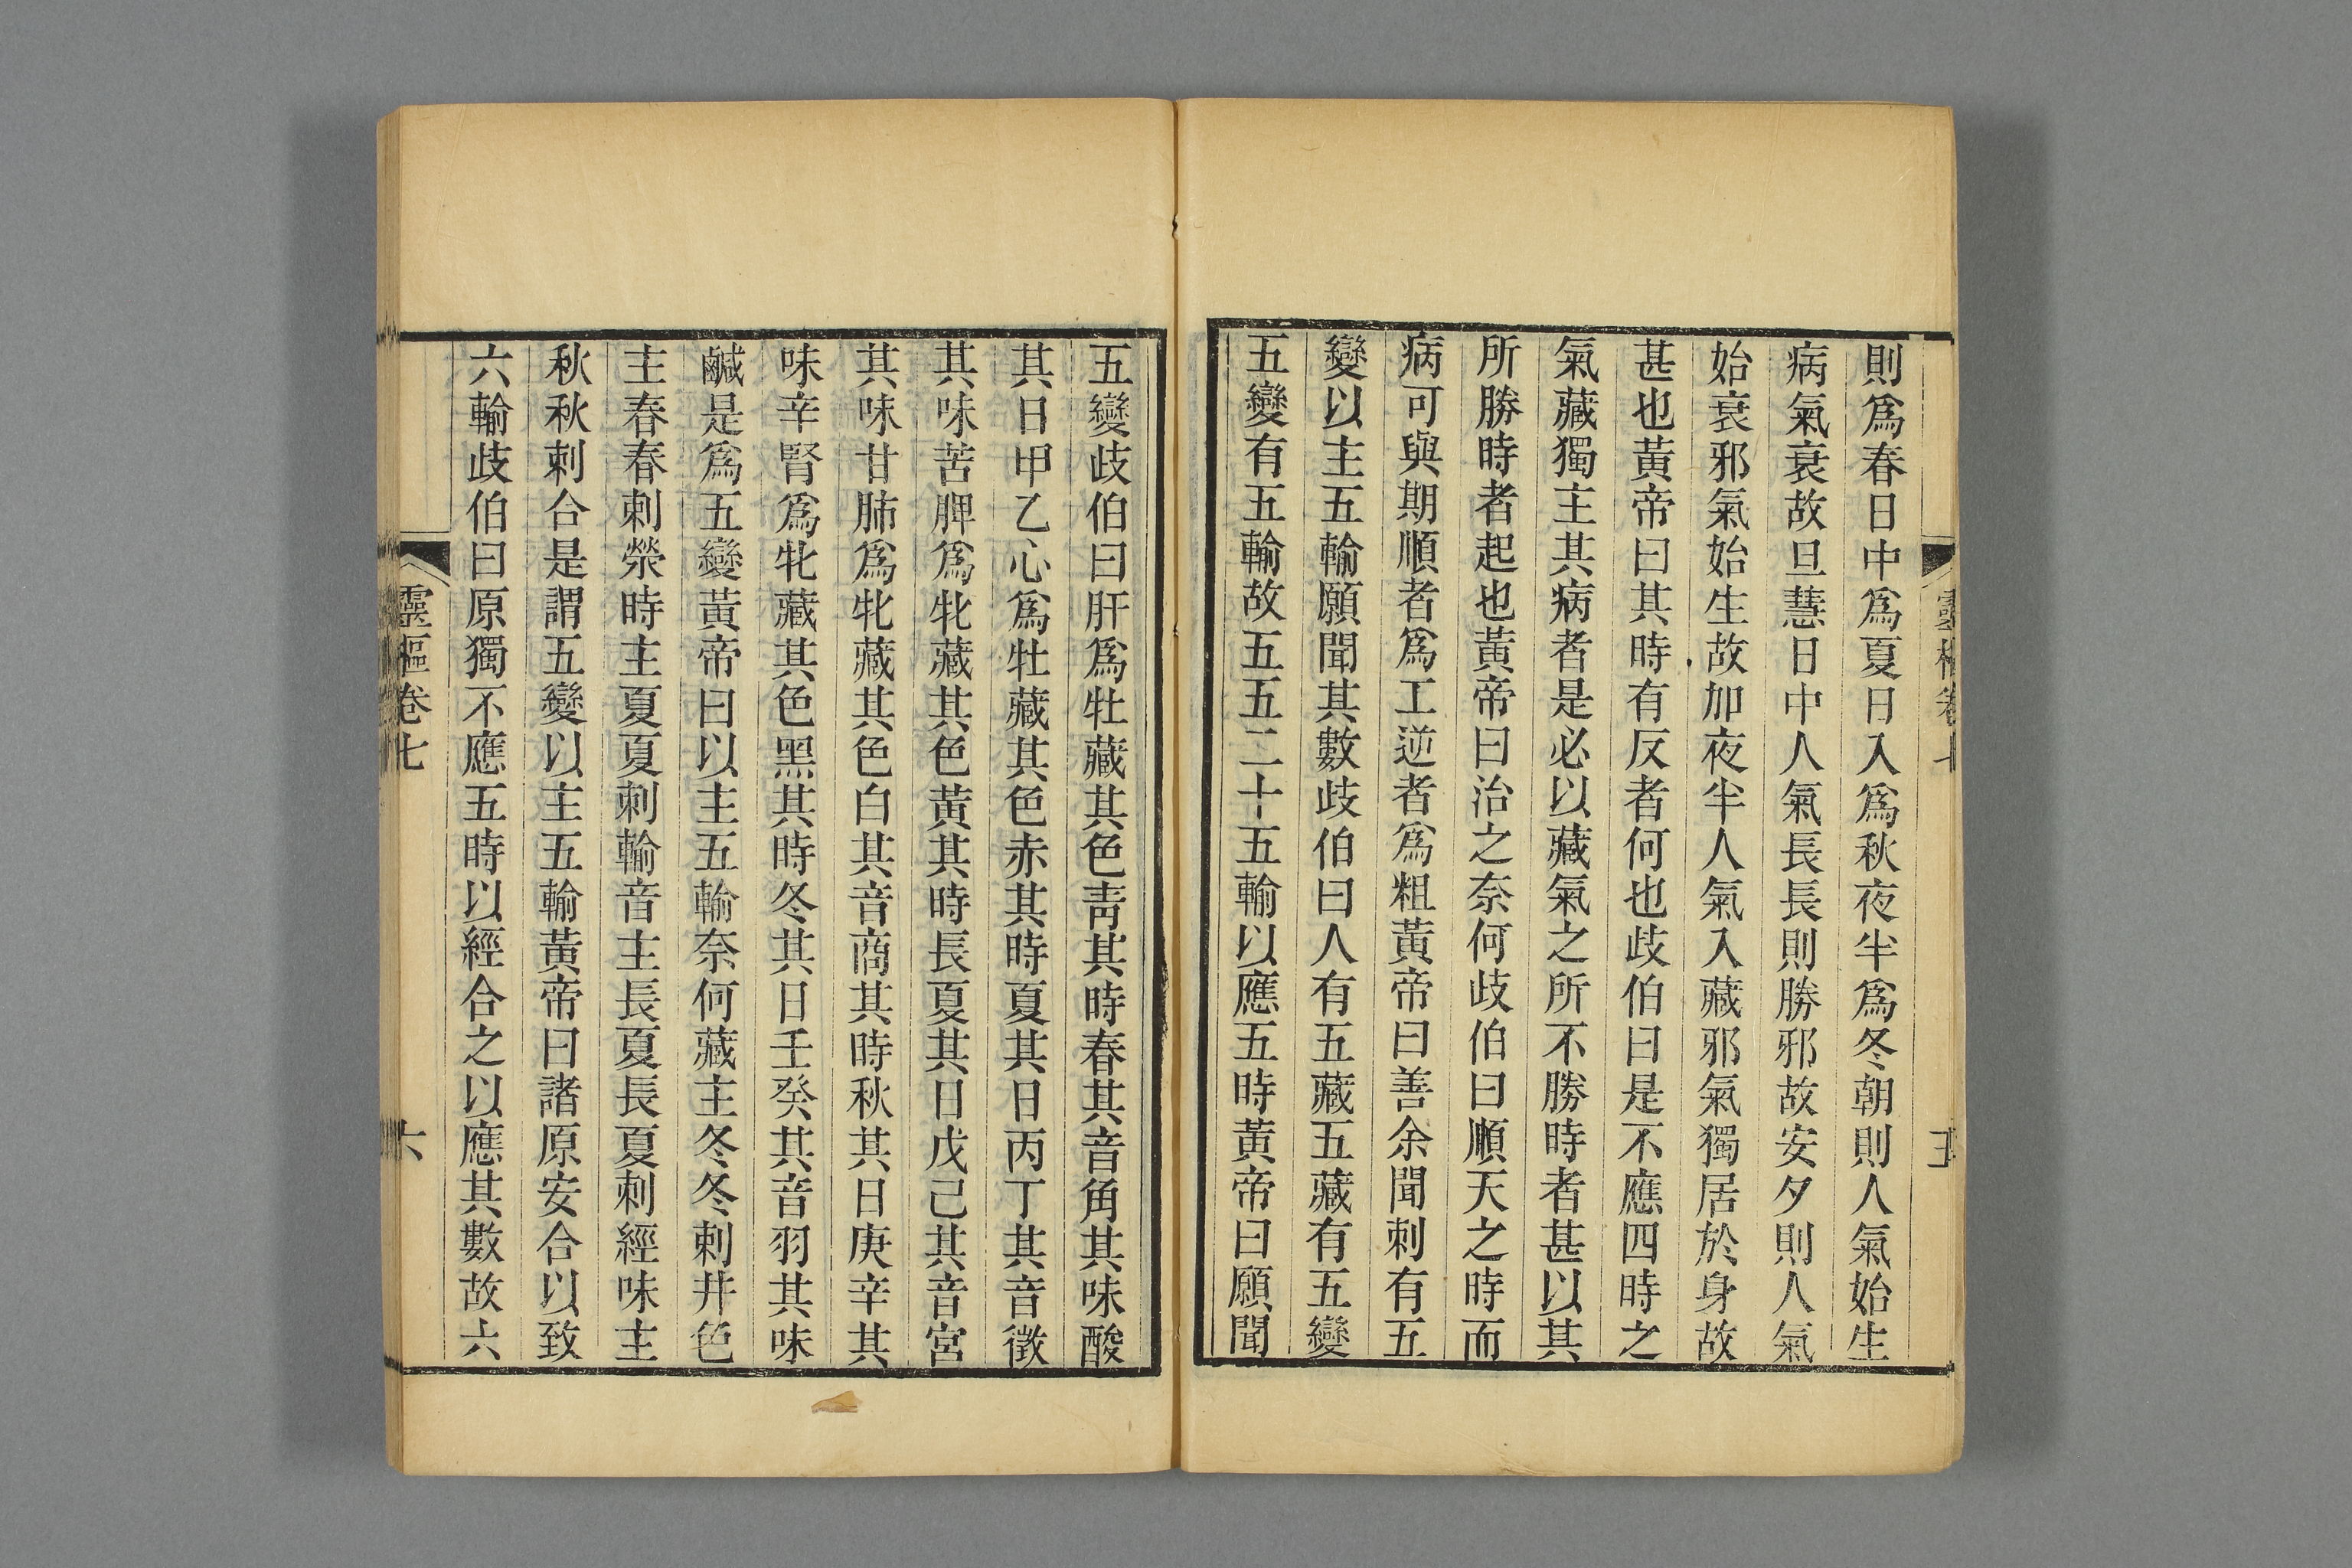 則爲春日中爲夏日入爲秋夜半爲冬朝則人氣始生
病氣衰故旦慧日中人氣長長則勝邪故安夕則人氣
始衰邪氣始生故加夜半人氣入藏邪氣獨居於身故
甚也黃帝曰其時有反者何也歧伯曰是不應四時之
氣藏獨主其病者是必以藏氣之所不勝時者甚以其
所勝時者起也黃帝曰治之奈何歧伯曰順天之時而
病可與期順者爲工逆者爲粗黃帝曰善余聞刺有五
變以主五輸願聞其數歧伯曰人有五藏五藏有五變
五變有五輸故五五二十五輸以應五時黃帝曰願聞
五變歧伯曰肝爲牡藏其色靑其時春其音角其味酸
其日甲乙心爲牡藏其色赤其時夏其日丙丁其音徵
其味苦脾爲牝藏其色黃其時長夏其日戊己其音宮
其味甘肺爲牝藏其色白其音商其時秋其日庚辛其
味辛腎爲牝藏其色黑其時冬其日壬癸其音羽其味
鹹是爲五變黃帝曰以主五輸奈何藏主冬冬刺井色
主春春刺滎時主夏夏刺輸音主長夏長夏刺經味主
秋秋刺合是謂五變以主五輸黃帝曰諸原安合以致
六輸歧伯曰原獨不應五時以經合之以應其數故六
靈樞卷七
六